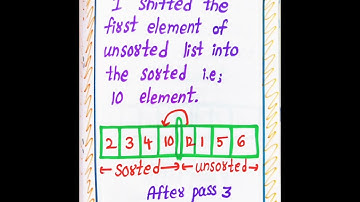 I shifted the
first element of
unsorted list into
the sorted i.e;
10 element.
2 3 4 10 12 1 5 6
sorted unsorted
After pass 3